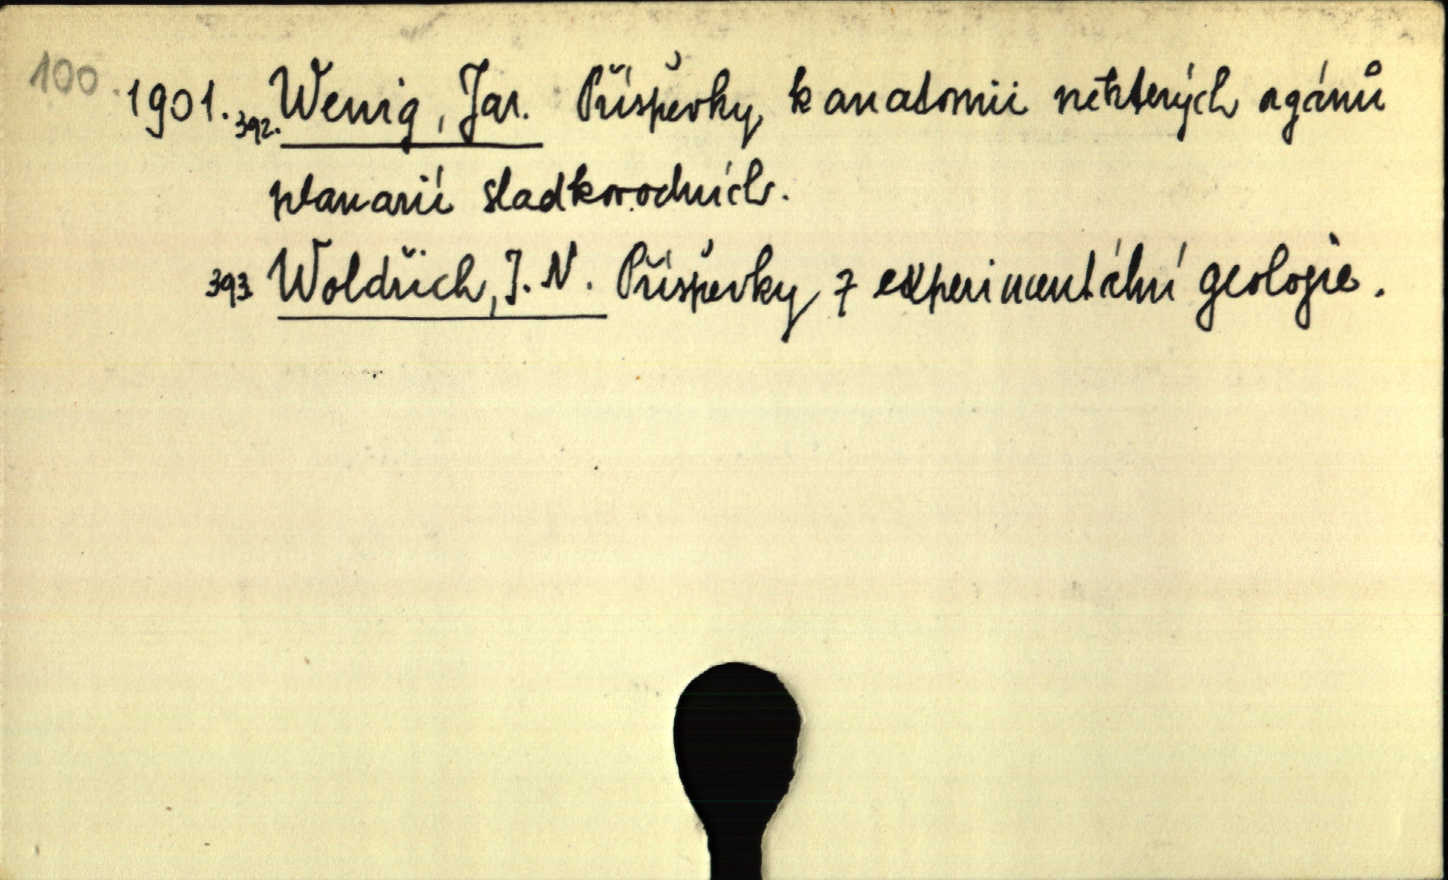 100. 1901. 392. Wenig, Jar. Příspěvky k anatomii některých orgánů
planarií sladkovodních.
393 Woldřich, J. N. Příspěvky z experimentální geologie.